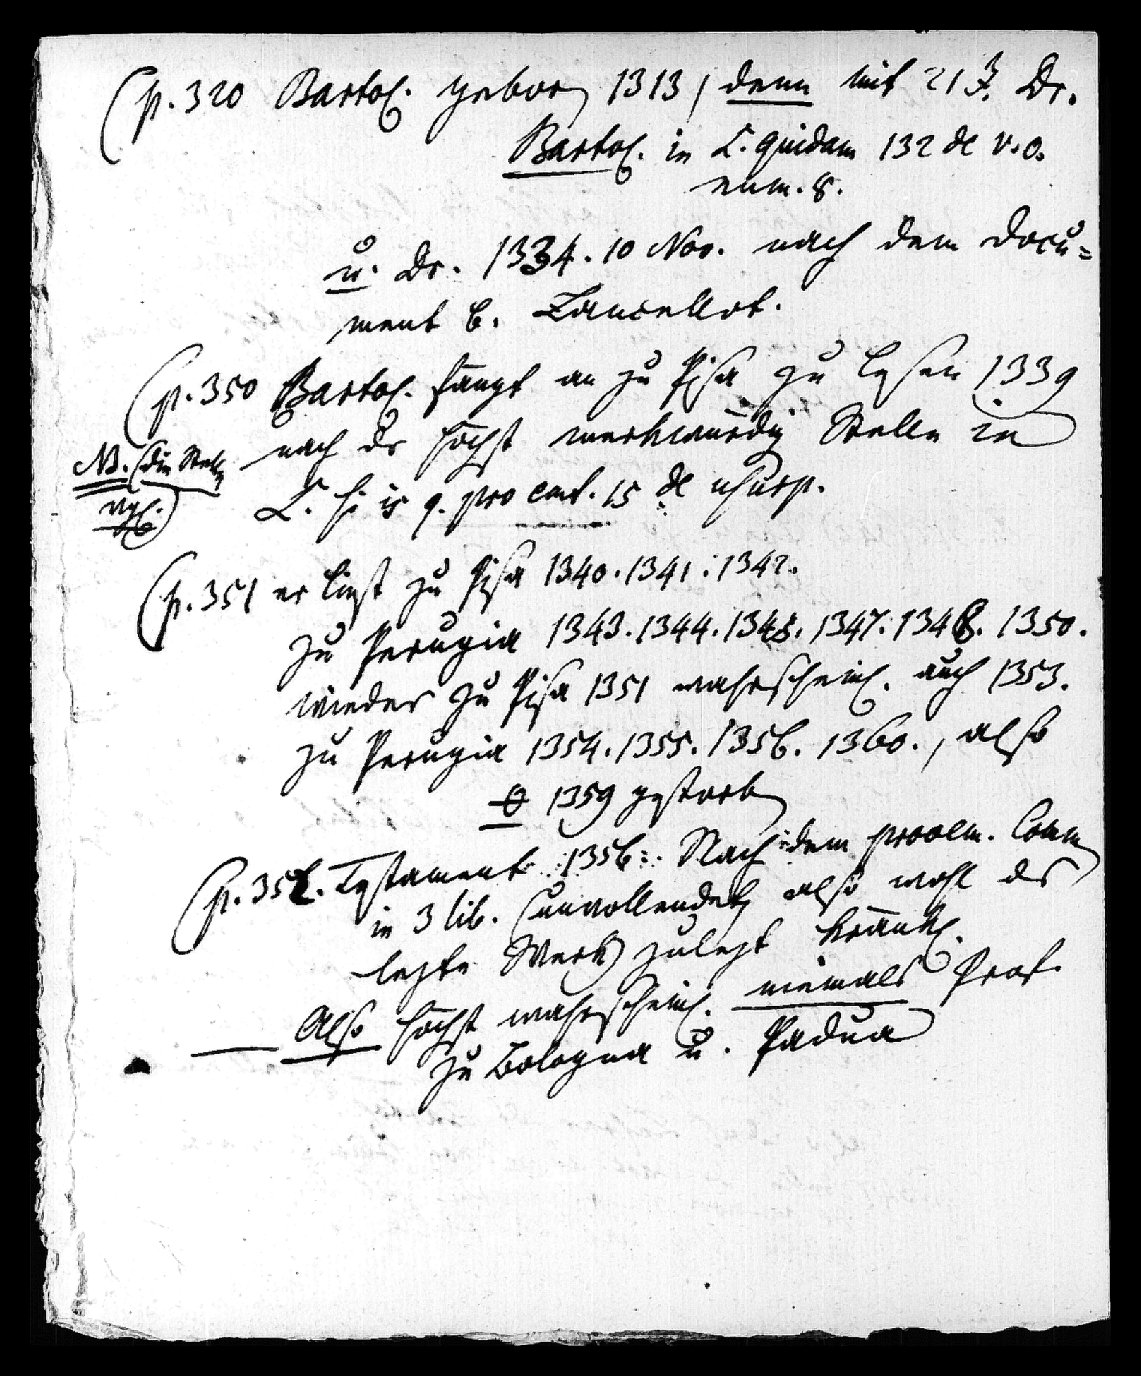 (p. 320 Bartol. geboren 1313, denn mit 21 J. Dr.
Bartol. in L. quidam 132 de V. O.
num. 8.
u. Dr. 1334. 10 Nov. nach dem Docu=
ment b. Lancellot.
(p. 350 Bartol. fängt an zu Pisa zu lesen 1339
nach der höchst merkwürdig Stelle in
NB. (die Stelle
vgl.)
L. si is q. pro emt. 15 de usurp.
(p. 351 er liest zu Pisa 1340. 1341. 1342.
zu Perugia 1343. 1344. 1345. 1347. 1348. 1350.
wieder zu Pisa 1351 wahrscheinl. auch 1353.
zu Perugia 1354. 1355. 1356. 1360., also
1359 gestorben
(p. 352. Testament 1356. Nach dem prooem. Comm
in 3 lib. (unvollendet, also wohl das
letzte Werk) zuletzt kränkl.
Also höchst wahrscheinl. niemals Prof.
zu Bologna u. Padua